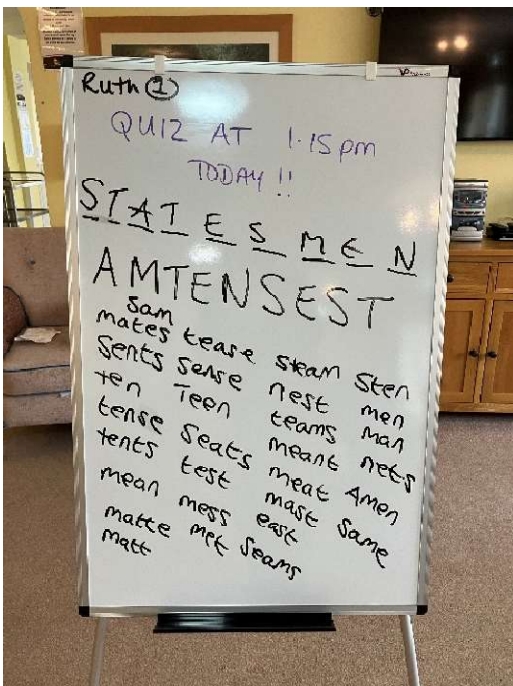 Ruth ①
QUIZ AT 1.15pm
TODAY !!
STATESMEN
AMTENSEST
Sam
mates tease steam Sten
Sents Sense nest men
ten Teen teams man
tense Seats meant nets
tents test meat Amen
mean mess mast Same
matte met east
matt Seams